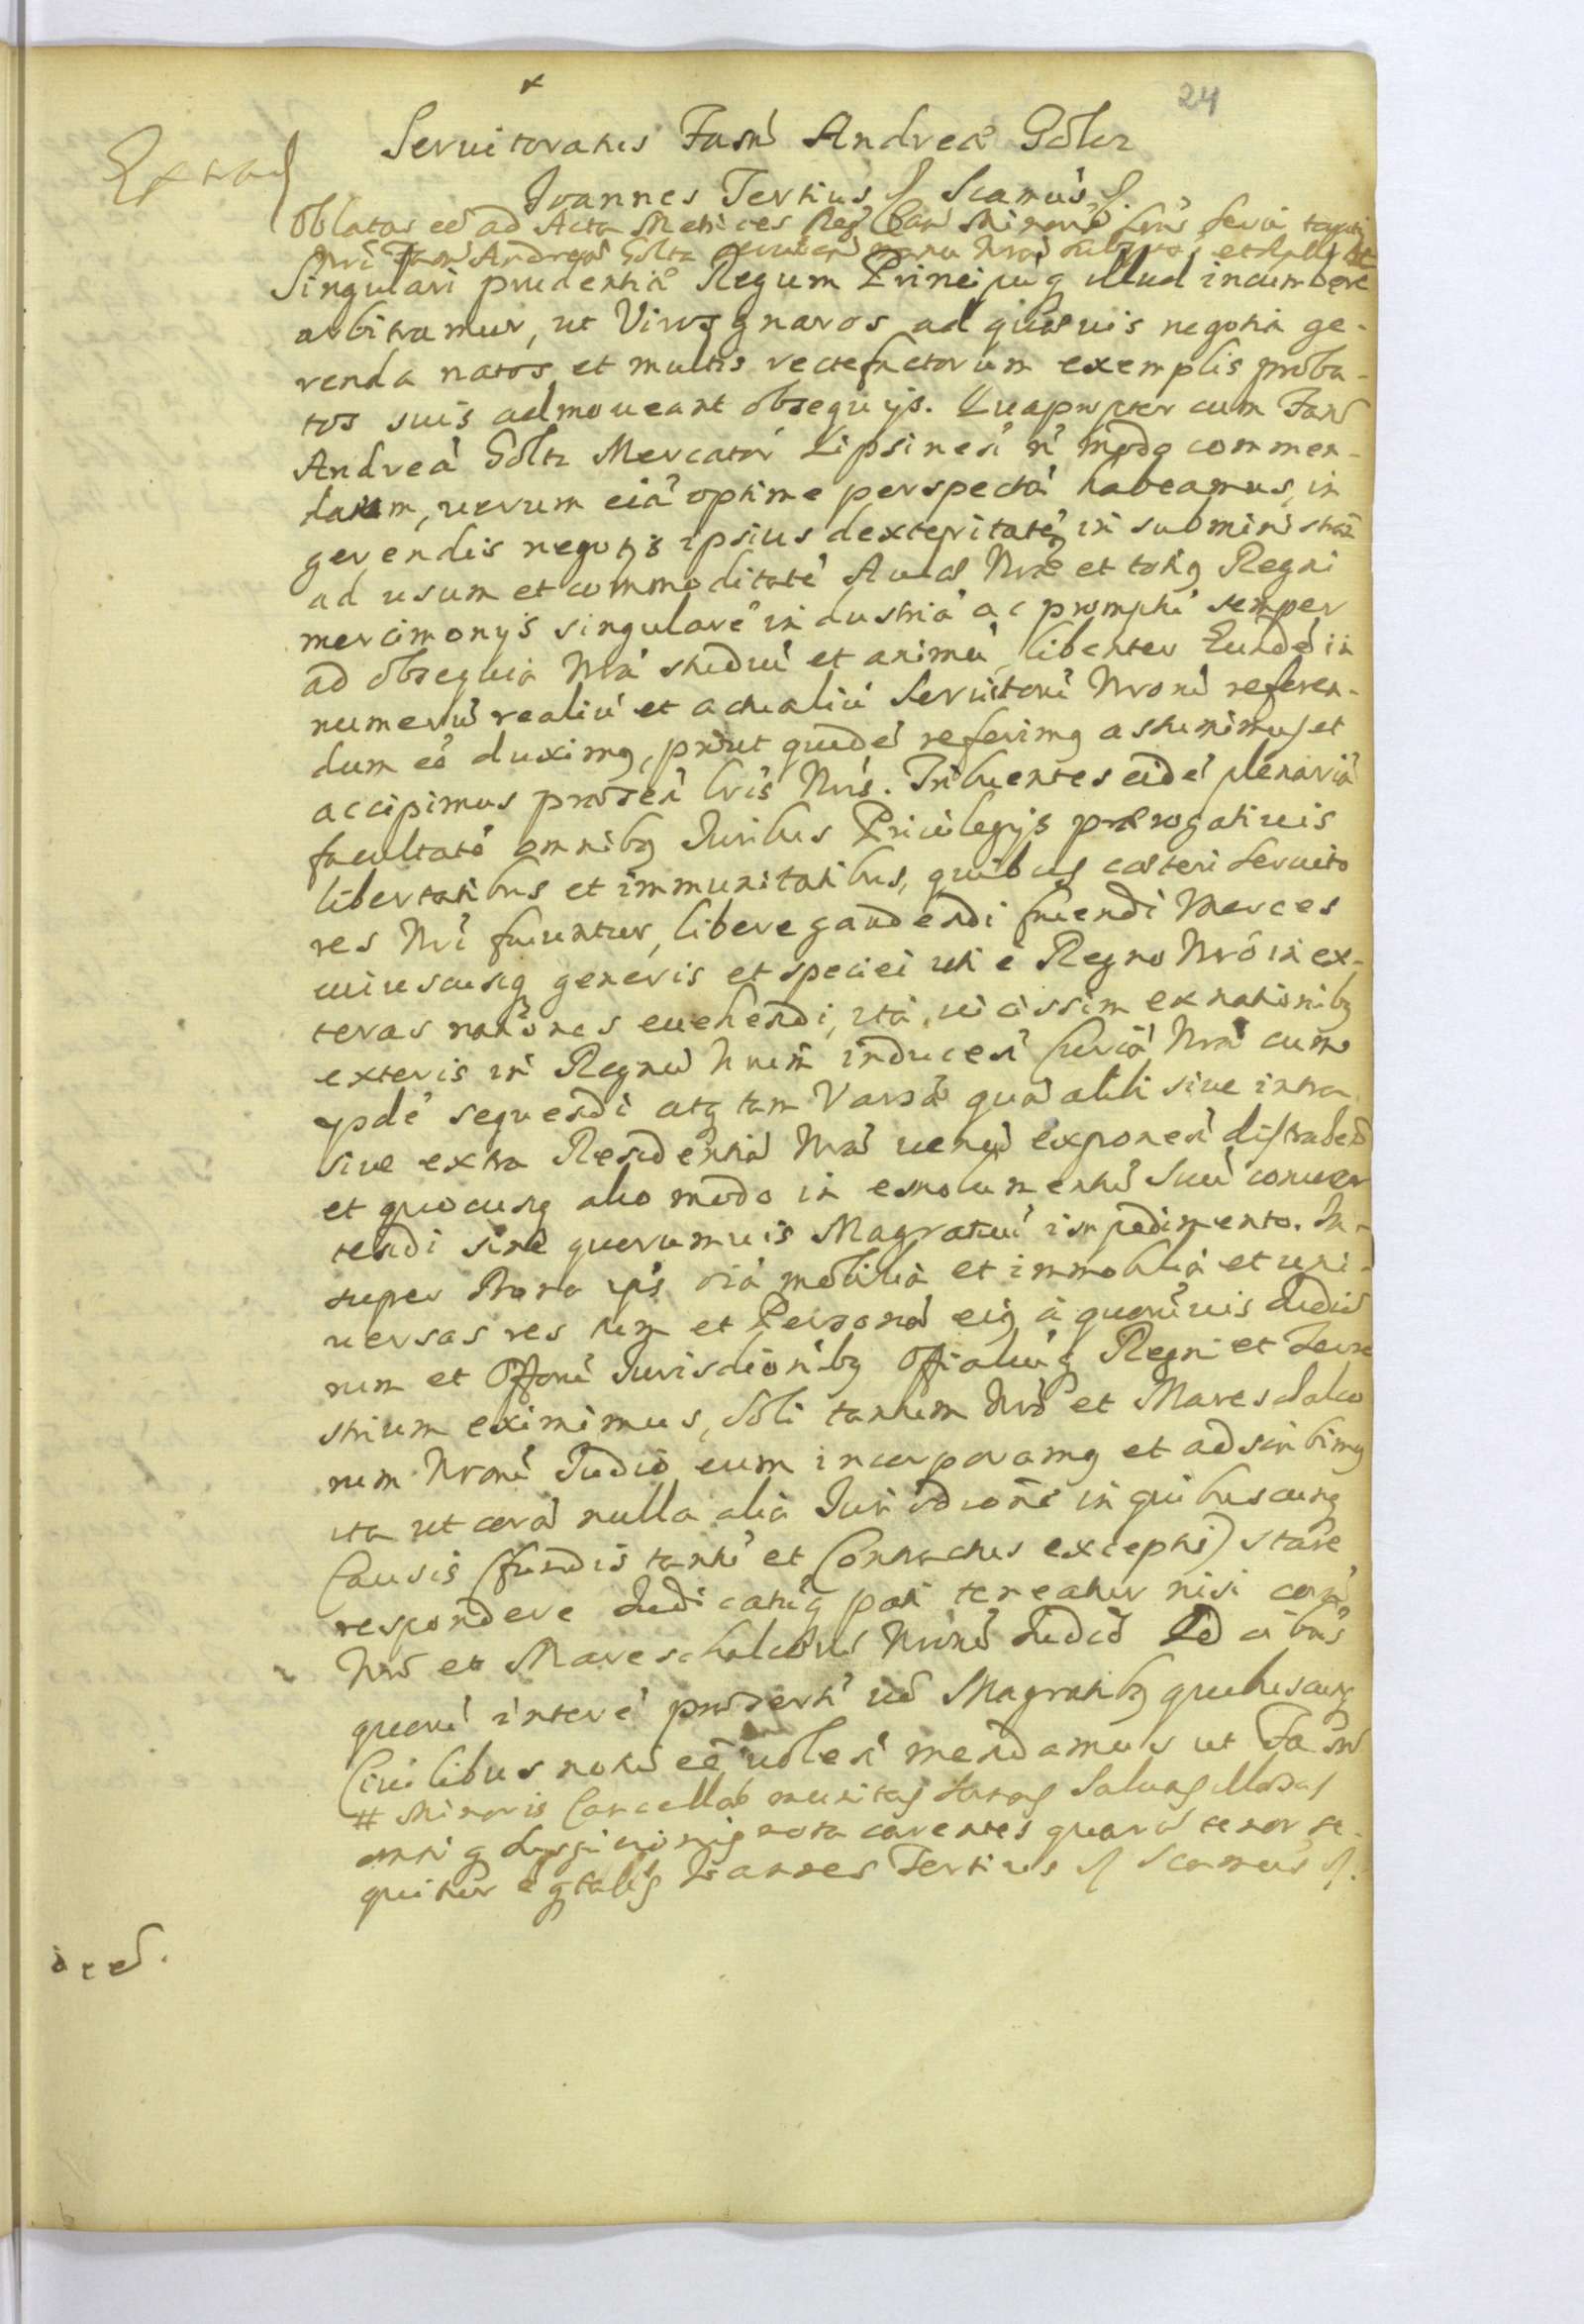 24
Extrad
Seruitoratus Famã Andreæ Goltz
Joannes Tertius Scamus
Oblatas eẽ ad Acta Metrices Reg Can Minoris
Andreæ Goltz manu Nrã
Singulari prudentiæ Regum Principuq illud incumbere
arbitramur, ut Viros gnaros ad quæuis negotia ge-
renda natos et multis rectefactorum exemplis proba-
tos suis admoueant obsequijs. Quapropter cum Famã
Andreã Goltz Mercatorẽ Lipsinesẽ ñ modo commen-
datum, uerum etiã optime perspectã habeamus, in
gerendis negotijs ipsius dexteritatẽ, in subministrañ
ad usum et commoditatẽ Aulæ Nræ et totiq Regni
mercimonijs singularẽ industriã ac promptũ semper
ad obsequia Nrã studiũ et animũ, libenter Eundẽ in
numerũ realiũ et actualiũ Seruitorũ Nrorũ referen-
dum eẽ duximq, prout quidẽ referimq assumimus et
accipimus præsen lris Nris. Tribuentes eidẽ plenariã
facultatẽ omnibq Juribus Priuilegijs prærogatiuis
libertatibus et immunitatibus, quibus cæteri Seruito
res Nri fruuntur, libere gaudendi fruendi Merces
cuiuscunq generis et speciei uti è Regno Nrõ in ex-
teras nationes euehendi, ità uicissim ex nationibq
exteris in Regnũ Nrum inducẽ Curiã Nrã cum
ijsdẽ sequendi atq tam Varsæ quã alibi siue intra
siue extra Residentiã Nrã uenũ exponeñ distrahend
et quocunq alio modo in emolumentũ suũ conuer
tendi sine quorumuis Magratuũ impedimento. In-
super Bona ips oiã mobilia et immobilia et uni-
uersas res tum et Personã eiq à quoruuis Judicio
rum et Offiorũ Jurisdionibq Offialiuq Regni et Terre
strium eximimus, soli tantum Nrõ et Mareschalco
rum Nrorũ Judiciõ eum incorporamq et adscribimq
ita ut corã nulla aliã Jurisdictione in quibuscunq
Causis (fundis tantũ et Contractus exceptis) stare
respondere Judicatuq pati teneatur nisi corã
Nrõ et Mareschalcorũ Nrorũ Judiciõ Id oibus
quorũ interẽ præsertĩ uõ Magratibq quibuscunq
Ciuilibus notũ eẽ uoleñ mandamus ut Famã
# Minoris Cancellaæ munitas sanas Saluas illæsas
omniq suspicionis nota carentes quarũ tenor se-
quitur eq talis Joannes Tertius Scamus